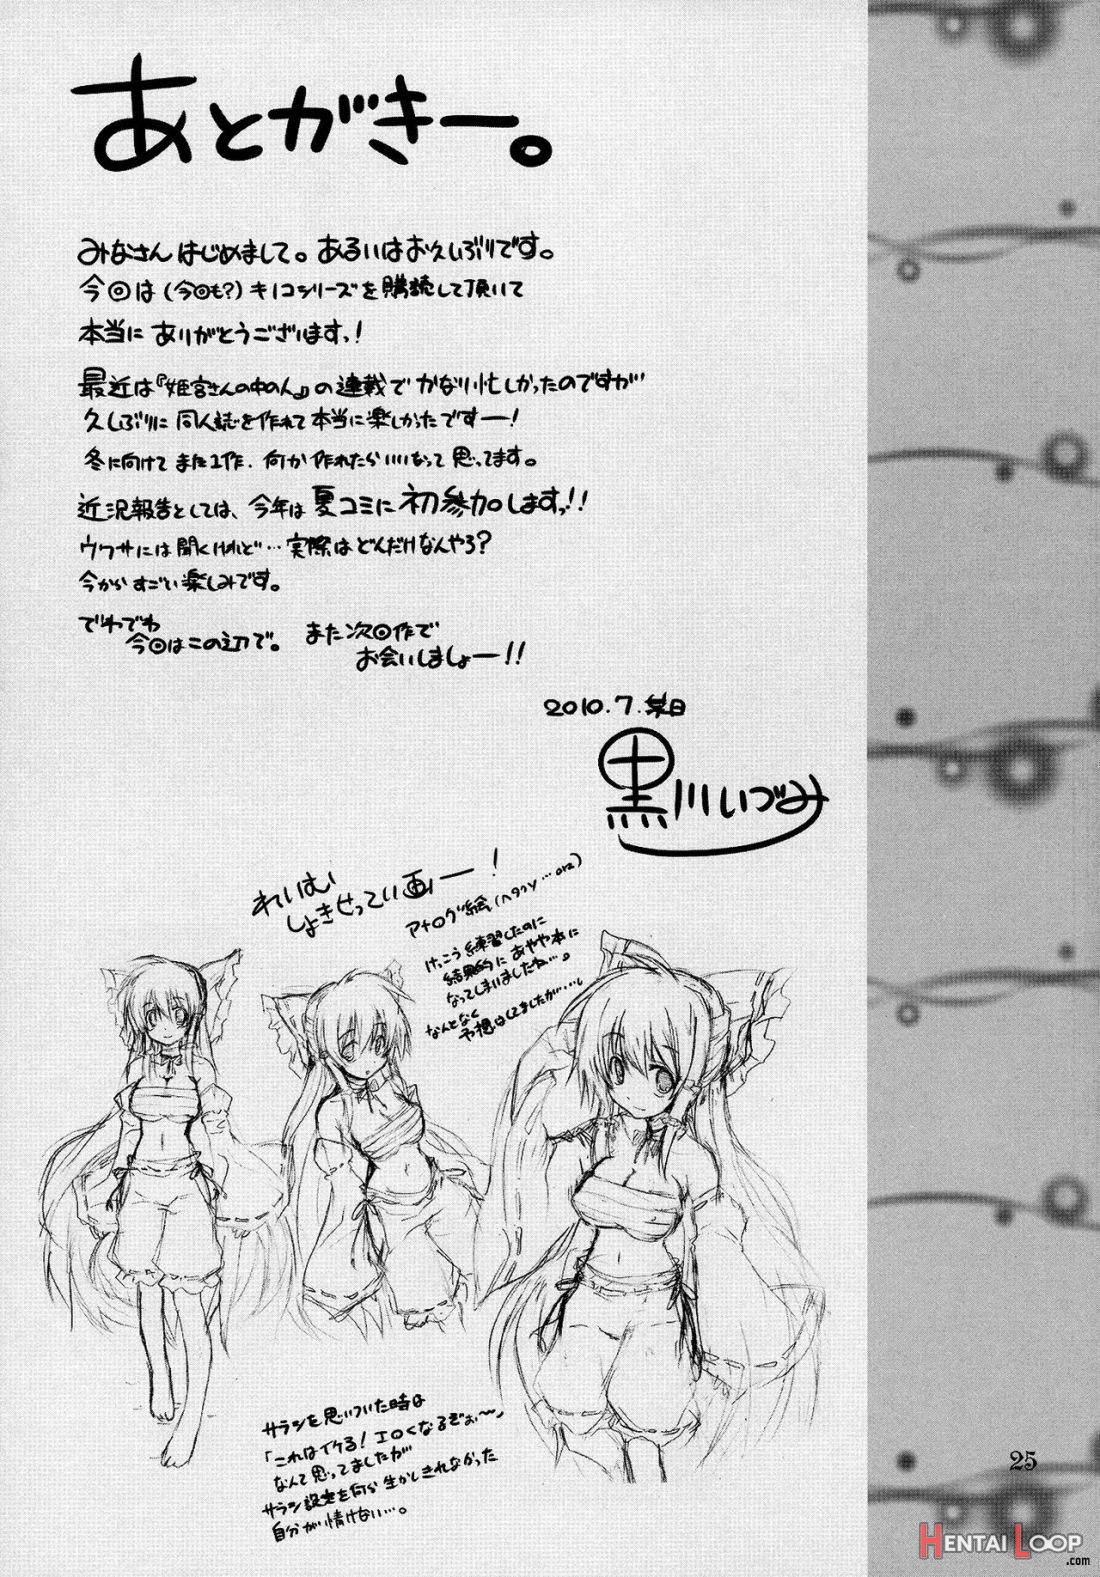 あとがきー。
みなさんはじめまして。あるいはお久しぶりです。
今回は(今回も?)キノコシリーズを購読して頂いて
本当にありがとうございますっ!
最近は『姫宮さんの中の人』の連載でかなり忙しかったのですが
久しぶりに同人誌を作れて本当に楽しかったですー!
冬に向けてまた1作、何か作れたらいいなって思ってます。
近況報告としては、今年は夏コミに初参加しますっ!!
ウワサには聞くけれど…実際はどんだけなんやろ?
今からすごい楽しみです。
でわでわ
今回はこの辺で。
また次回作で
お会いしましょー!!
2010.7.某日
黒川いづみ
れいむ
しょきせってい画ー!
アナログ絵(ヘタっy…orz)
けっこう練習したのに
結果的にあやや本に
なってしまいましたね…。
なんとなく
予想はしてましたが…
サラシを思いついた時は
「これはイケる!エロくなるぞぉ〜」
なんて思ってましたが
サラシ設定を何ら生かしきれなかった
自分が情けない…。
25
HENTAI LOOP
.com